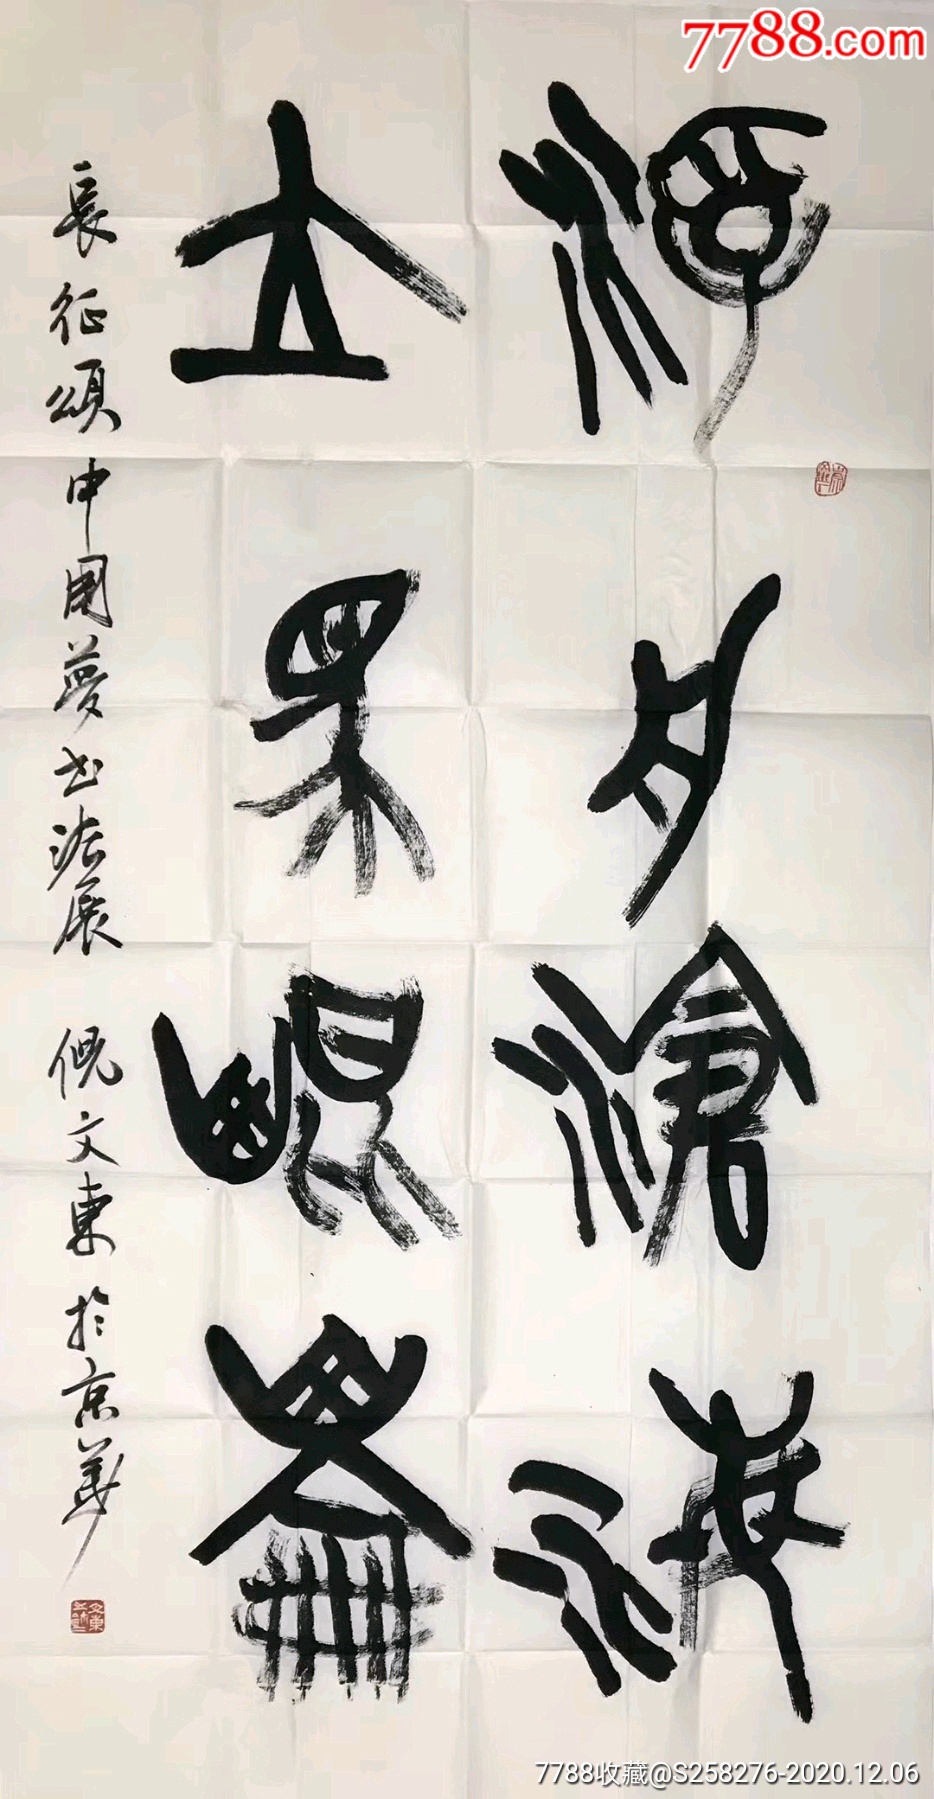 7788.com
滄海
立崑崙
長征頌中國夢书法展 倪文東於京華
文東
7788收藏@S258276-2020.12.06